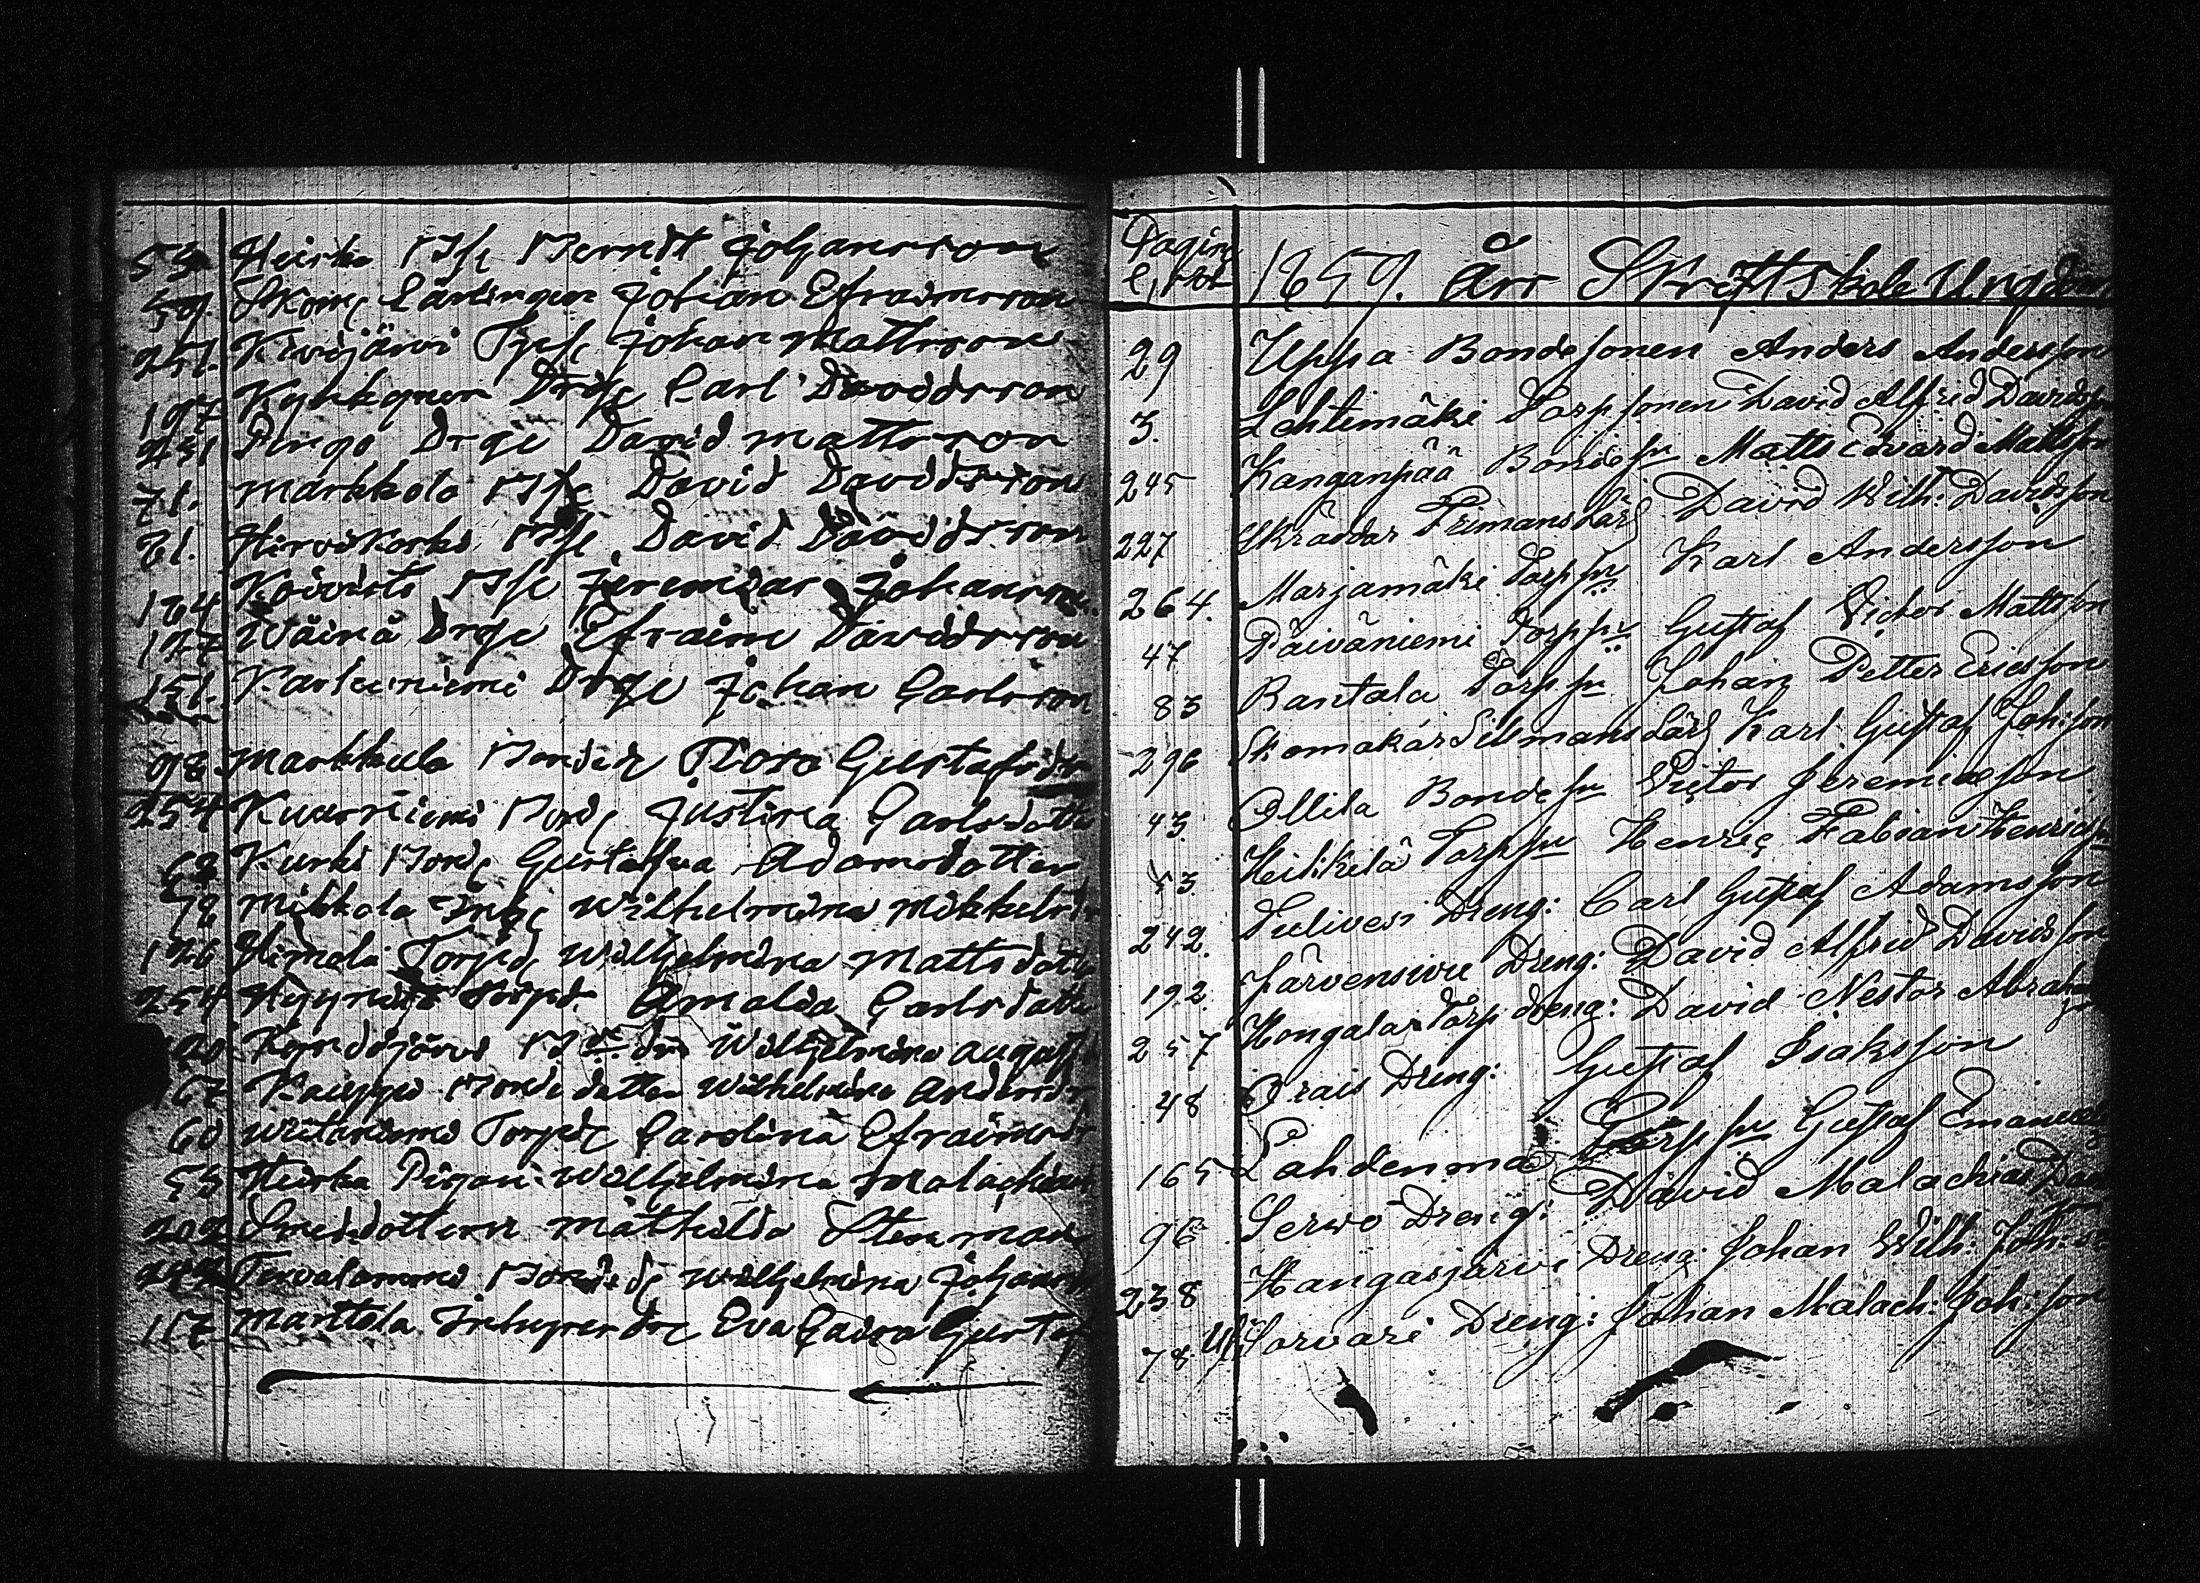 53 Heiska Bsn Berndt Johansson
59. Skom Lärlingen Johan Efraimsson
251. Kivijärvi Tpsn Johan Mattsson
197 Kyhkynen Drge Carl Davidsson
231 Pingo Drge David Mattsson
71. Markkola Bsn David Davidsson
81. Hirvikoski Bsn David Davidsson
184 Koivisto Bsn Jeremias Johansson
127 Wäinä Drge Efraim Davidsson
151. Drge Johan Carlsson
98 Markkula Bonded Rosa Gustafsdr
254 Kuusniemi Bond Justina Carlsdotter
68 Kurki Bond Gustafva Adamsdotter
78 Mikkola Wilhelmina Mikkelsdr
126 Himela Torpd Wilhelmina Mattsdotter
254 Torpd Amalia Carlsdotter
Wilhelmina August
167 Kauppi Bonde dotter Wilhelmina Andersdr
60 Wiitaniemi Torpd Carolina Efraimsdr
53 Heiska Pigan Wilhelmina Malachias
202 Smeddottern Mathilda Stenman
242 Tervalammi Bonded Wilhelmina Johans
117 Marttila Inhyses dr Eva Caisa Gustaf
Pagina
1859. Års Skriftskole Ungdom
29 Uppa Bondesonen Anders Andersson
3. Lehtimäki Torpsonen David Alfred Davidsson
245 Kanganpää Bondesn Matts Edvard Mattsson
227 Skräddar Frimans Lärl David Wilh: Davidsson
264. Marjamäki Torpsn Karl Andersson
47 Päiväniemi Torpsn Gustaf Victor Mattsson
83 Rantala Torpsn Johan Petter Ericsson
296 Skomakar Sillmans Lärl Karl Gustaf Joh:son
43. Ollila Bondesn Victor Jeremiasson
53. Heikkilä Torpsn Henric Fabian Henricsson
242. Tulivesi Dreng: Carl Gustaf Adamsson
192 Järvensivu Dreng: David Alfrid Davidsson
257 Hongalax Torp dreng: David Nestor Abraham
son
48 Orais Dreng: Gustaf Isaksson
165 Lahdenmaa Torpsn Gustaf Emanuel
96 Serwo Dreng: David Malachias Davi
238 Kangasjärvi Dreng: Johan Wilh: Joh:son
78 Uf Sorvari Dreng: Johan Malach: Joh:son